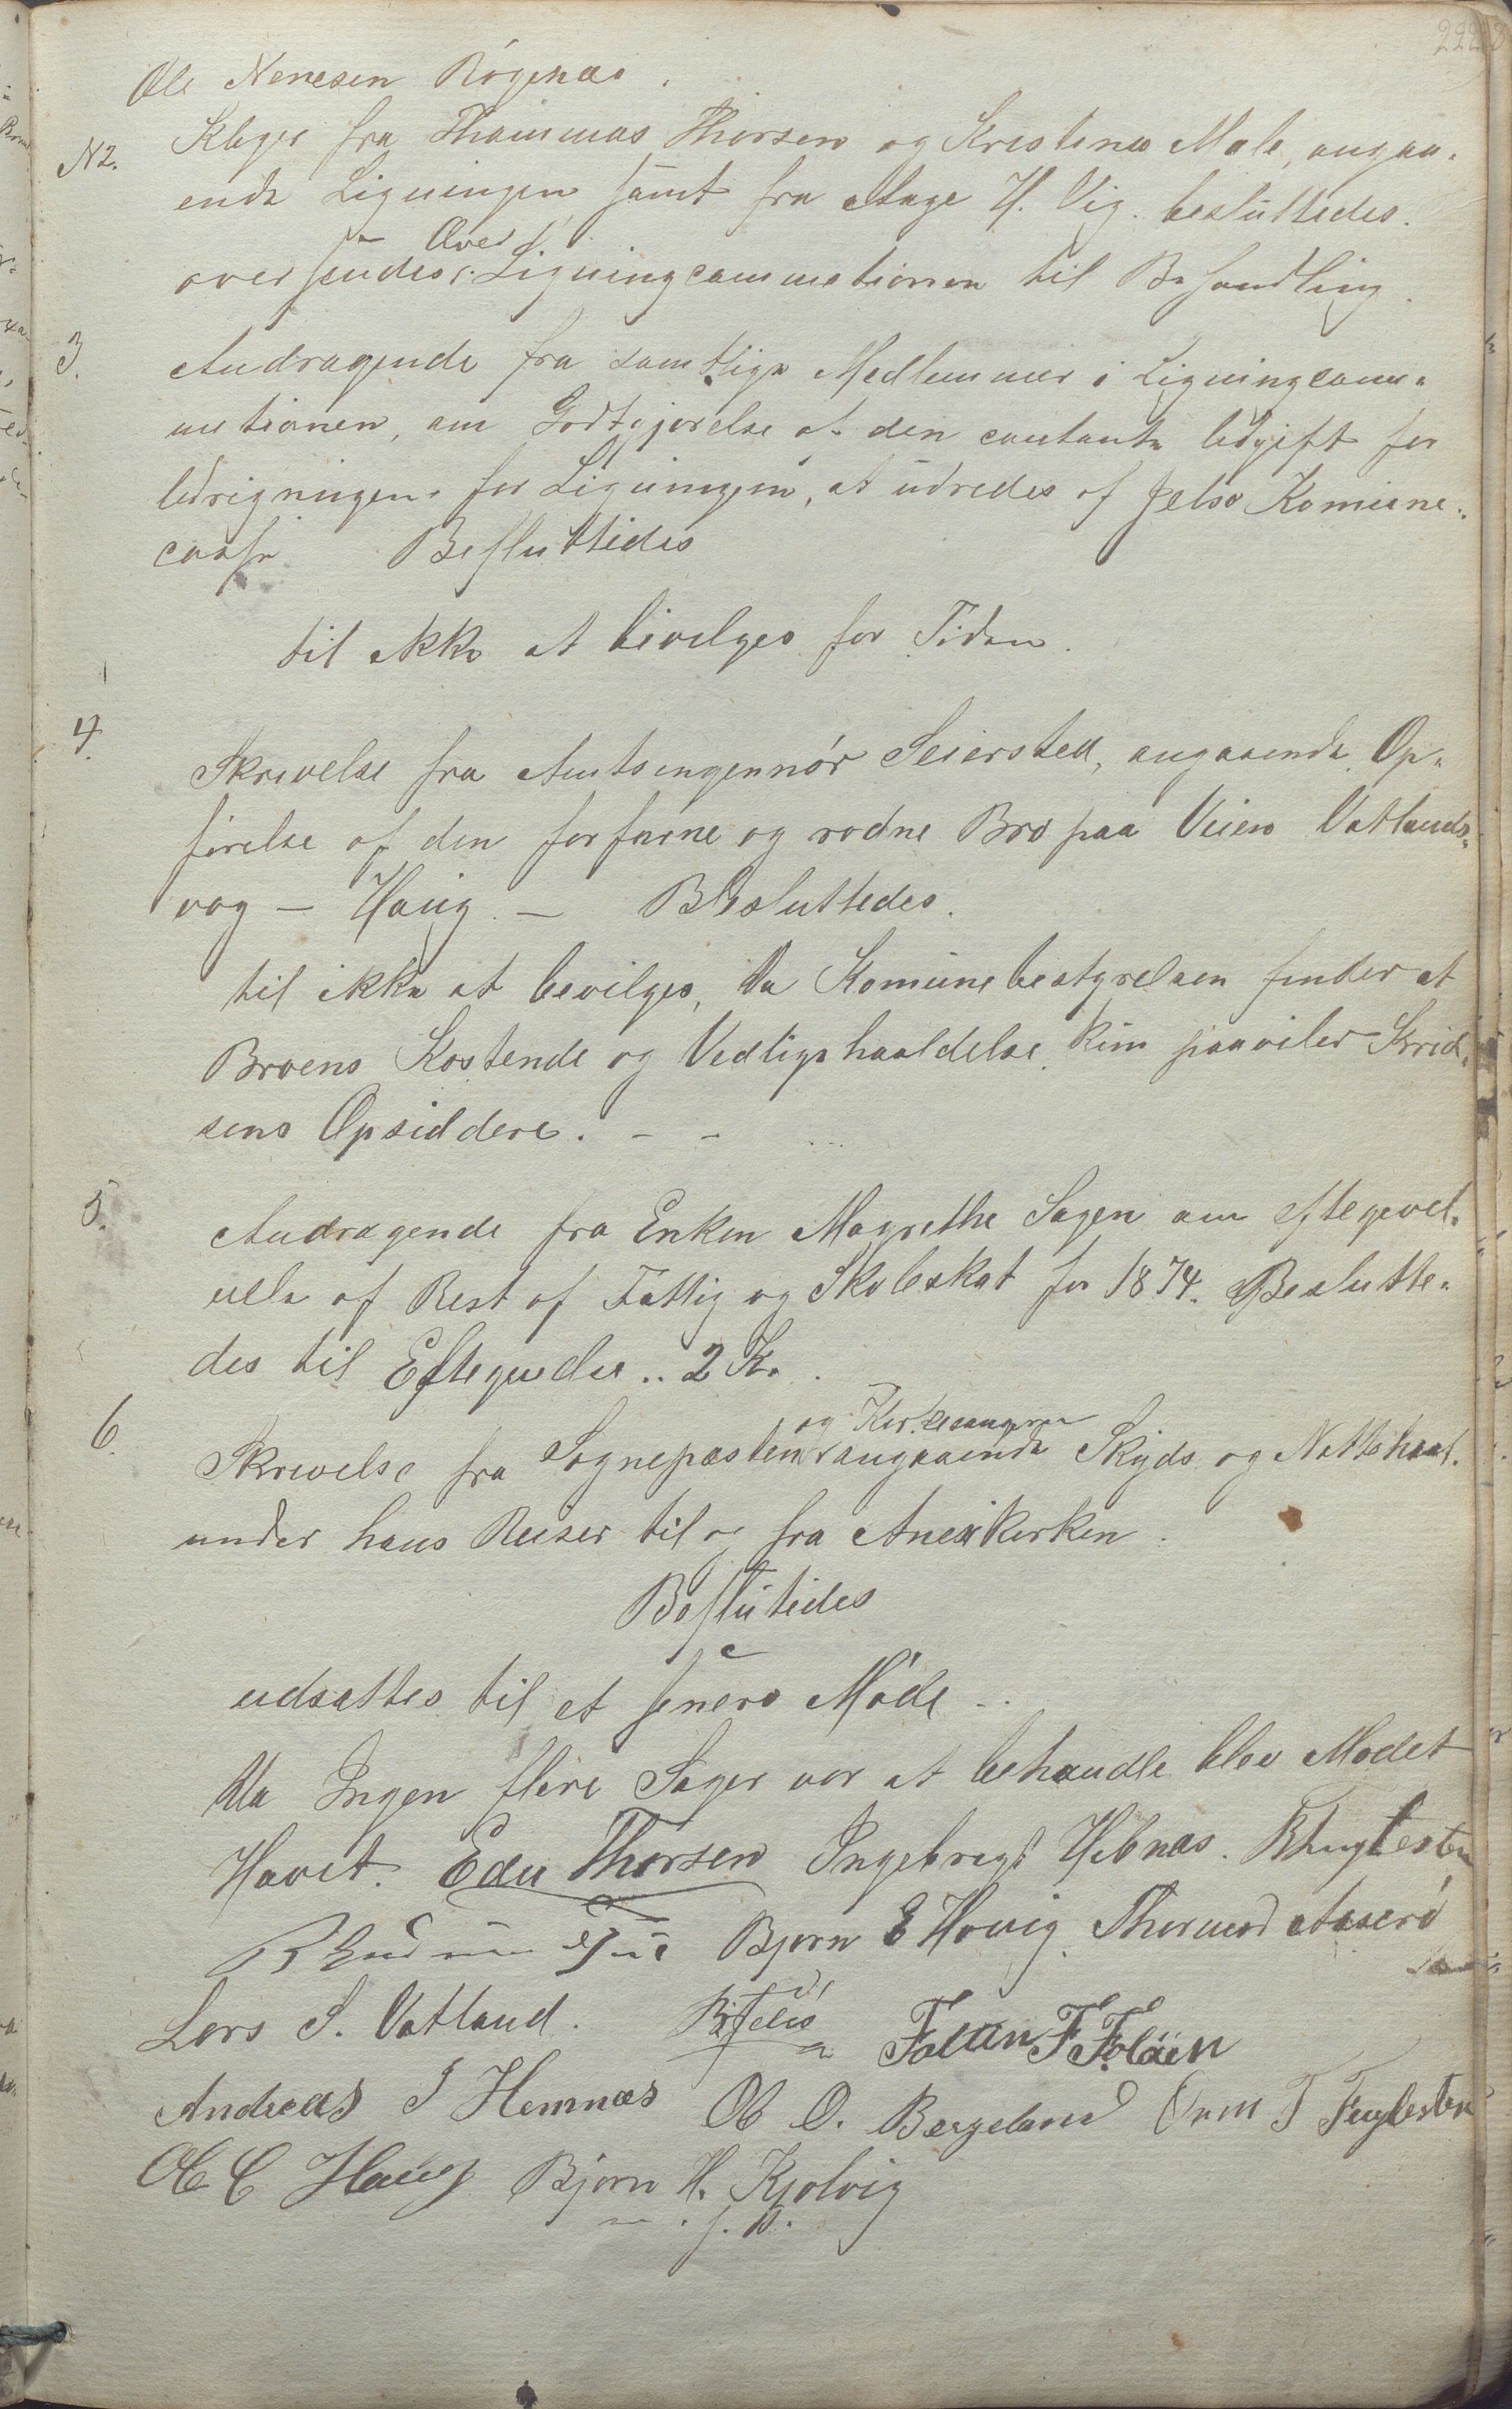 222
Ole Nenesen Røgenæs.
N2. Klager fra Thaimmas Thorsen og Kristines Male, angaa-
ende Ligningen samt fra Aage H. Vig. besluttedes.
Over
oversendes Ligningcommetionen til Behandling.
3. Andragende fra samtlige Medlemmer i Ligningcom-
metionen, om Godtgjørelse af den contante Udgift for
Udrigningen for Ligningen, at udredes af Jelsø Komune-
casse Besluttedes
til ikke at bevelges for Tiden.
4. Skrivelse fra Amtsingennør Seiersted, angaaende Op-
førelse af den forfarne og rodne Bro paa Veien Vatlands-
vog - Haug - Besluttedes.
til ikke at bevilges, da Komunebestyrelsen finder at
Broens Kostende og Vedligehaaldelse kun paaviler Krid-
sens Opsiddere. - -
5. Andragende fra Enken Magrethe Sagen om eftegivel-
uelse af Rest af Fattig og Skoleskat for 1874. Beslutte-
des til Eftegivelse .. 2 K.
og Kirkesangeren
6. Skrivelse fra Sognepæsten angaaende Skyds og Nattehaal.
under hans Reiser til og fra Anexkirken.
Besluttedes
udsattes til et senere Møde -.
Da Ingen flere Sager var at behandle blev Mødet
Hævet. Edu Thorsen Ingebregt Hebnæs. R Fuglesten
Bjørn E Hovig. Thormod Aaserø
Lars S. Vatland. Foltin F Foläen
Andreas I Hemnæs Ol O. Bergeland Orm T Fuglesten
Ol C Haug Bjørn H. Kjølvig
m. f. P.